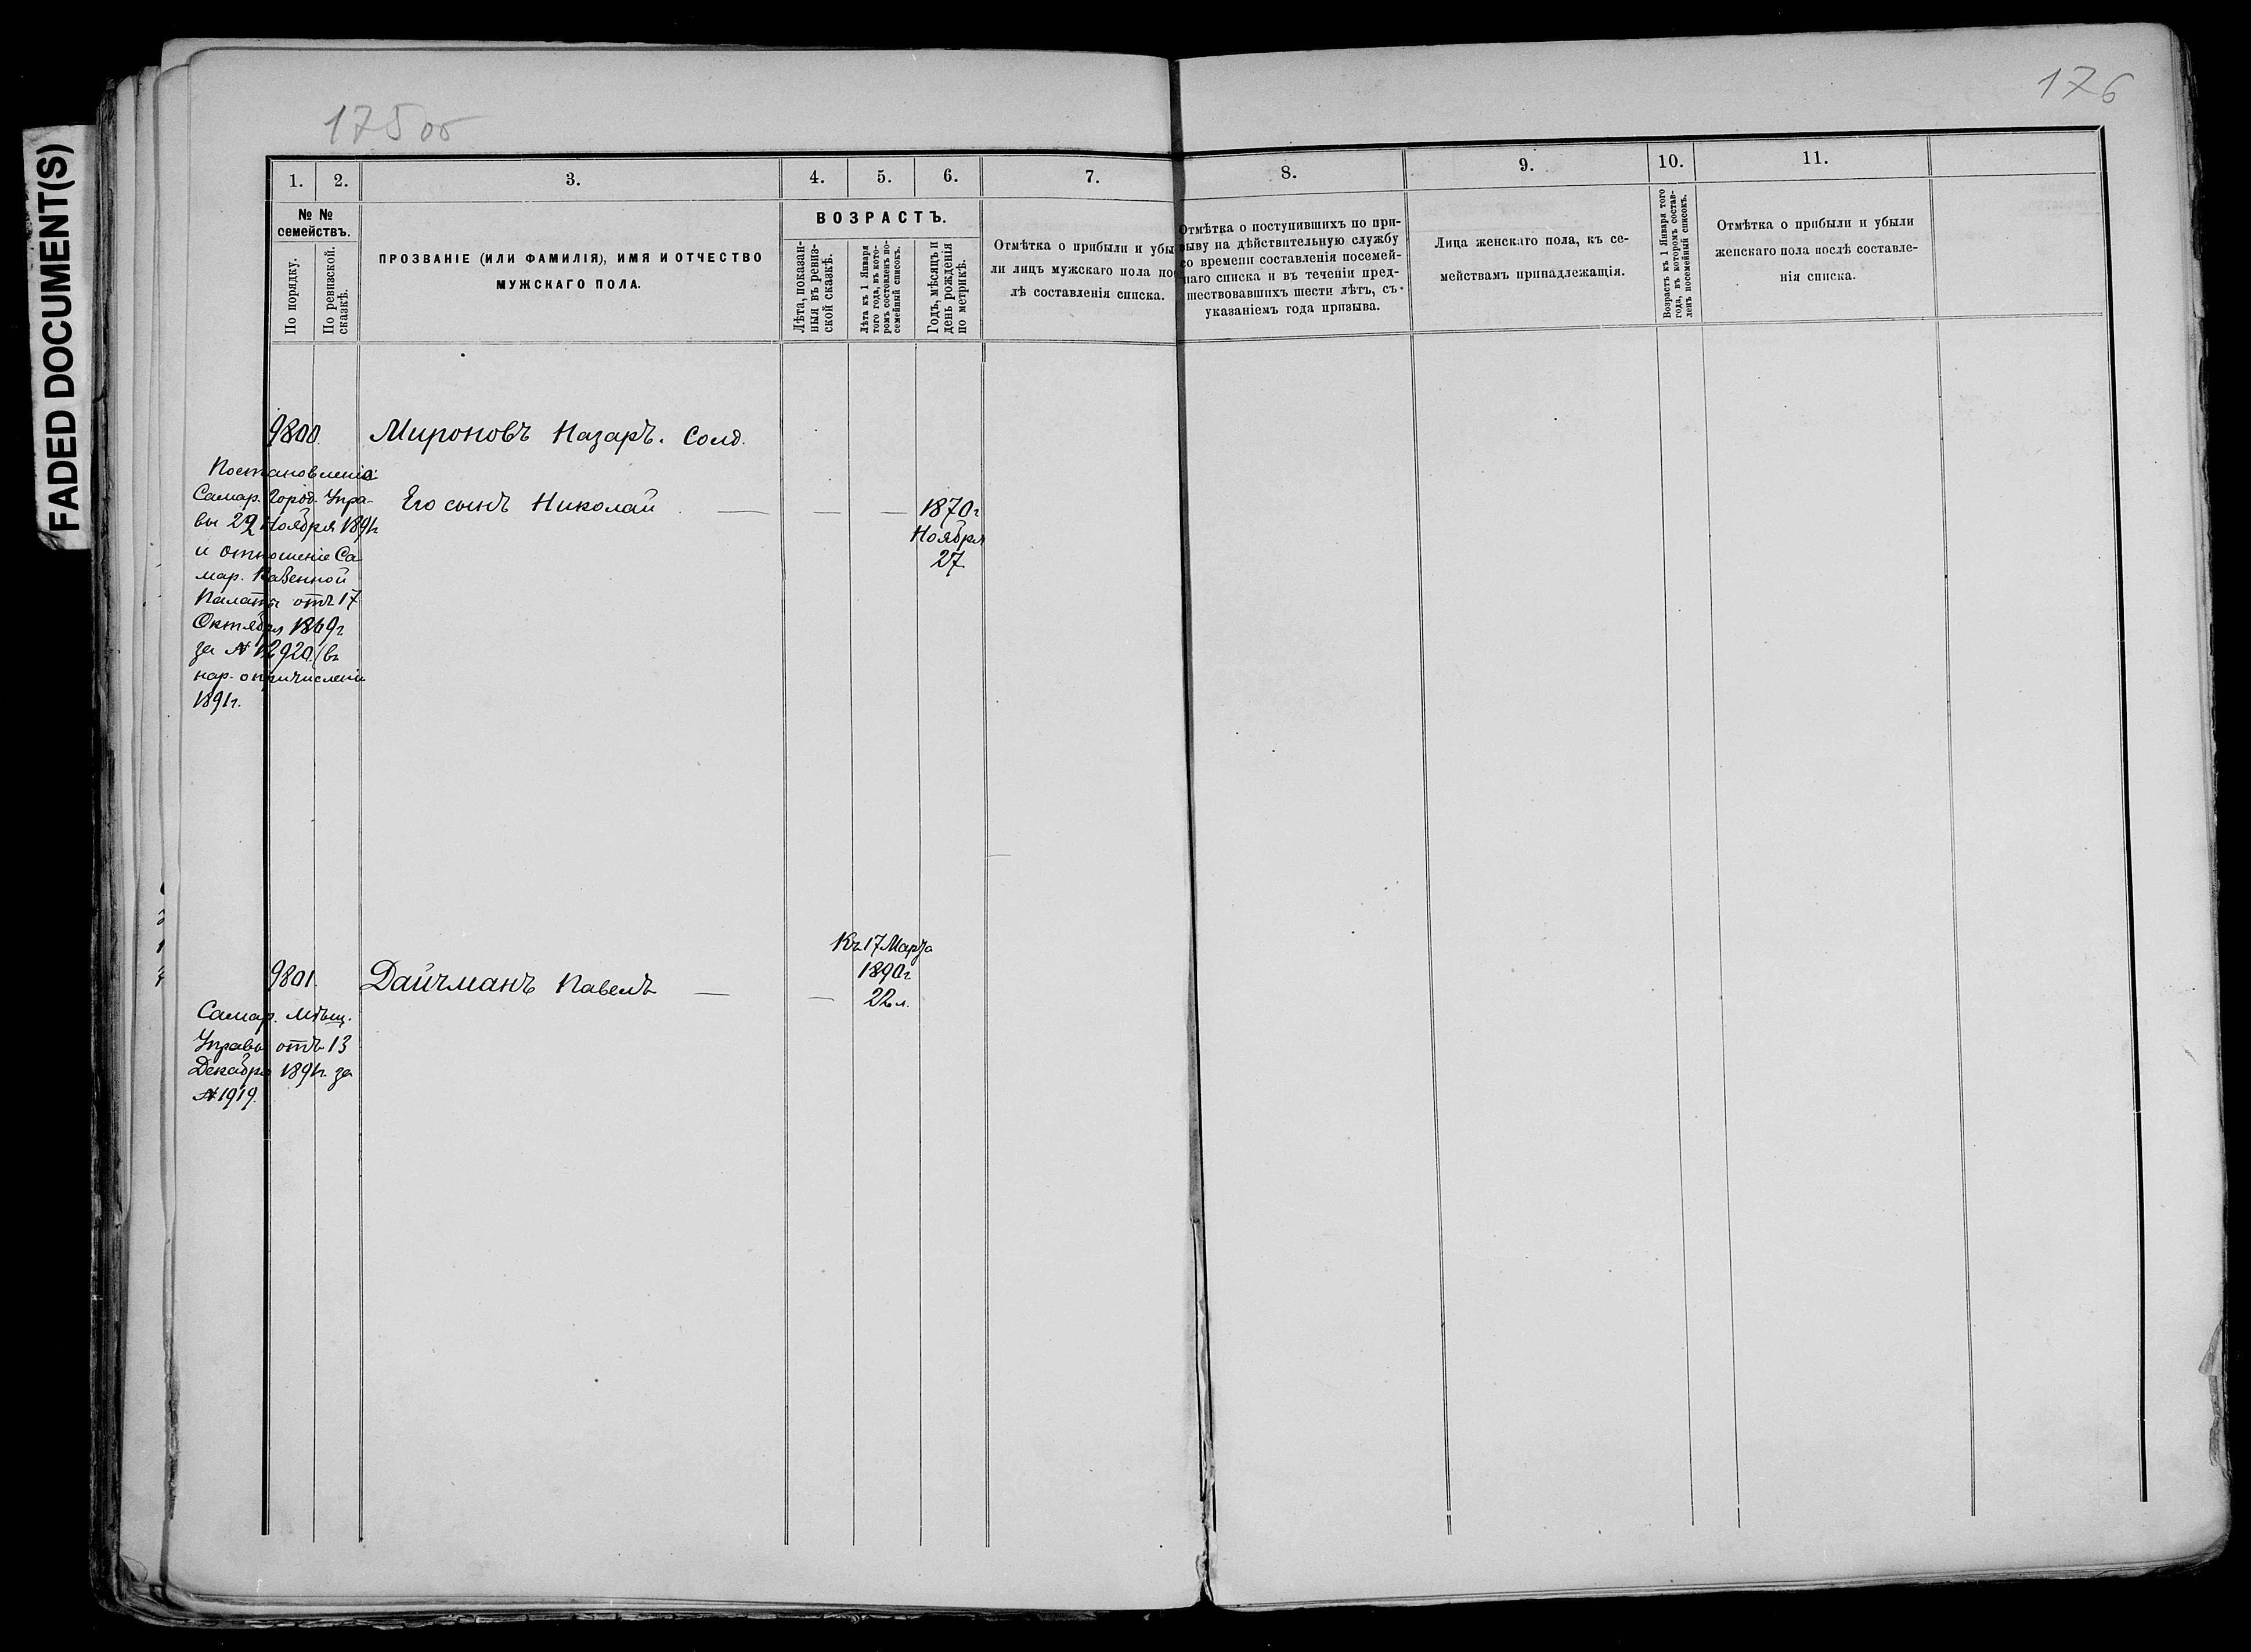 FADED DOCUMENT(S)
175 об
176
1.
2.
3.
4.
5.
6.
7.
8.
9.
10.
11.
№ №
семействъ.
По порядку.
По ревизской
сказкѣ.
ПРОЗВАНІЕ (ИЛИ ФАМИЛІЯ), ИМЯ И ОТЧЕСТВО
МУЖСКАГО ПОЛА.
ВОЗРАСТЪ.
Лѣта, показан-
ныя въ ревиз-
ской сказкѣ.
Лѣта къ 1 Января
того года, въ кото-
ромъ состовленъ по-
семейный списокъ.
Годъ, мѣсяцъ и
день рожденія
по метрикѣ.
Отмѣтка о прибыли и убы
ли лицъ мужскаго пола пос
лѣ составленія списка.
Отмѣтка о поступившихъ по при-
зыву на дѣйствительную службу
со времени составленія посемей-
наго списка и въ теченіи пред-
шествовавшихъ шести лѣтъ, съ
указаніемъ года призыва.
Лица женскаго пола, къ се-
мействамъ принадлежащія.
Возрастъ къ 1 Января того
года, въ которомъ состав-
ленъ посемейный списокъ.
Отмѣтка о прибыли и убыли
женскаго пола послѣ составле-
нія списка.
9800. Мироновъ Назаръ. Солд.
Постановленіе
Самар. Город. Упра-
вы 29 Ноября 1891г.
и отношеніе Са-
мар. Казенной
Палаты отъ 17
Октября 1869г
за № 12920 (въ
нар. о причисленіи
1891г.
Его сынъ Николай — — — 1870г
Ноября
27
Къ 17 Марта
1890г
22 л.
9801. Дайчманъ Павелъ — —
Самар. Мѣщ.
Управы отъ 13
Декабря 1891г. за
№ 1919.